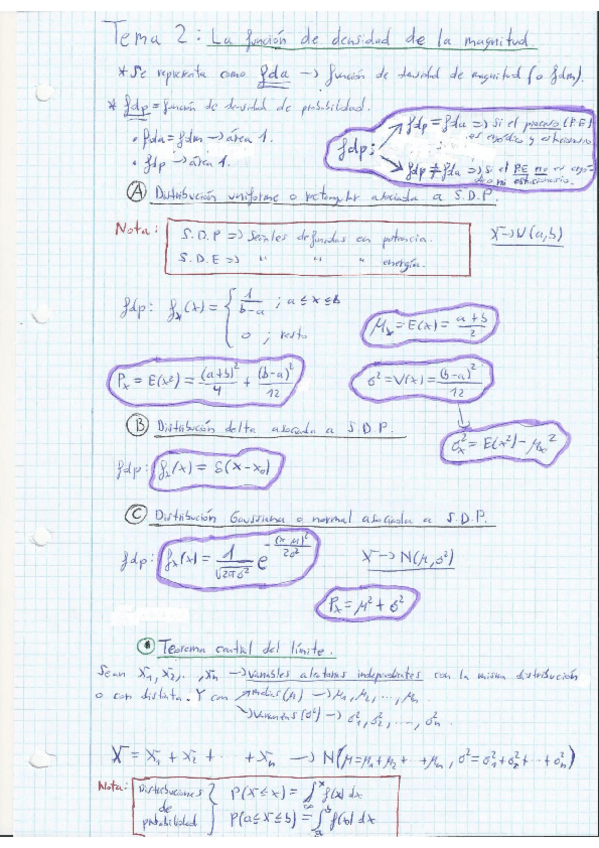 Tema 2: La función de densidad de la magnitud.
* Se representa como fda → función de densidad de amplitud (o fdm).
* fdp = función de densidad de probabilidad.
• fda = fdm → área 1.
• fdp → área 1.
fdp:
fdp = fda => si el proceso (P.E) es ergódico y estacionario
fdp ≠ fda => si el PE no es ergódico ni estacionario.
Ⓐ Distribución uniforme o rectangular asociada a S.D.P.
Nota:
S.D.P => Señales definidas en potencia.
S.D.E => " " " energía.
X → U(a,b)
fdp: fx(x) = { 1/(b-a) ; a ≤ x ≤ b
0 ; resto
μx = E(x) = (a+b)/2
Px = E(x²) = (a+b)²/4 + (b-a)²/12
σ² = V(x) = (b-a)²/12
σx² = E(x²) - μx²
Ⓑ Distribución delta asociada a S.D.P.
fdp: fx(x) = δ(x-x₀)
Ⓒ Distribución Gaussiana o normal asociada a S.D.P.
fdp: fx(x) = 1/√(2πσ²) e^(-(x-μ)²/2σ²)
X → N(μ,σ²)
Px = μ² + σ²
• Teorema central del límite.
Sean X₁, X₂, ..., Xn → variables aleatorias independientes con la misma distribución
o con distinta. Y con
medias (μ) → μ₁, μ₂, ..., μn.
Varianzas (σ²) → σ₁², σ₂², ..., σn².
X = X₁ + X₂ + ... + Xn → N(μ=μ₁+μ₂+...+μn, σ²=σ₁²+σ₂²+...+σn²)
Nota:
Distribuciones de probabilidad
P(X≤x) = ∫_∞^x f(x) dx
P(a≤X≤b) = ∫_a^b f(x) dx